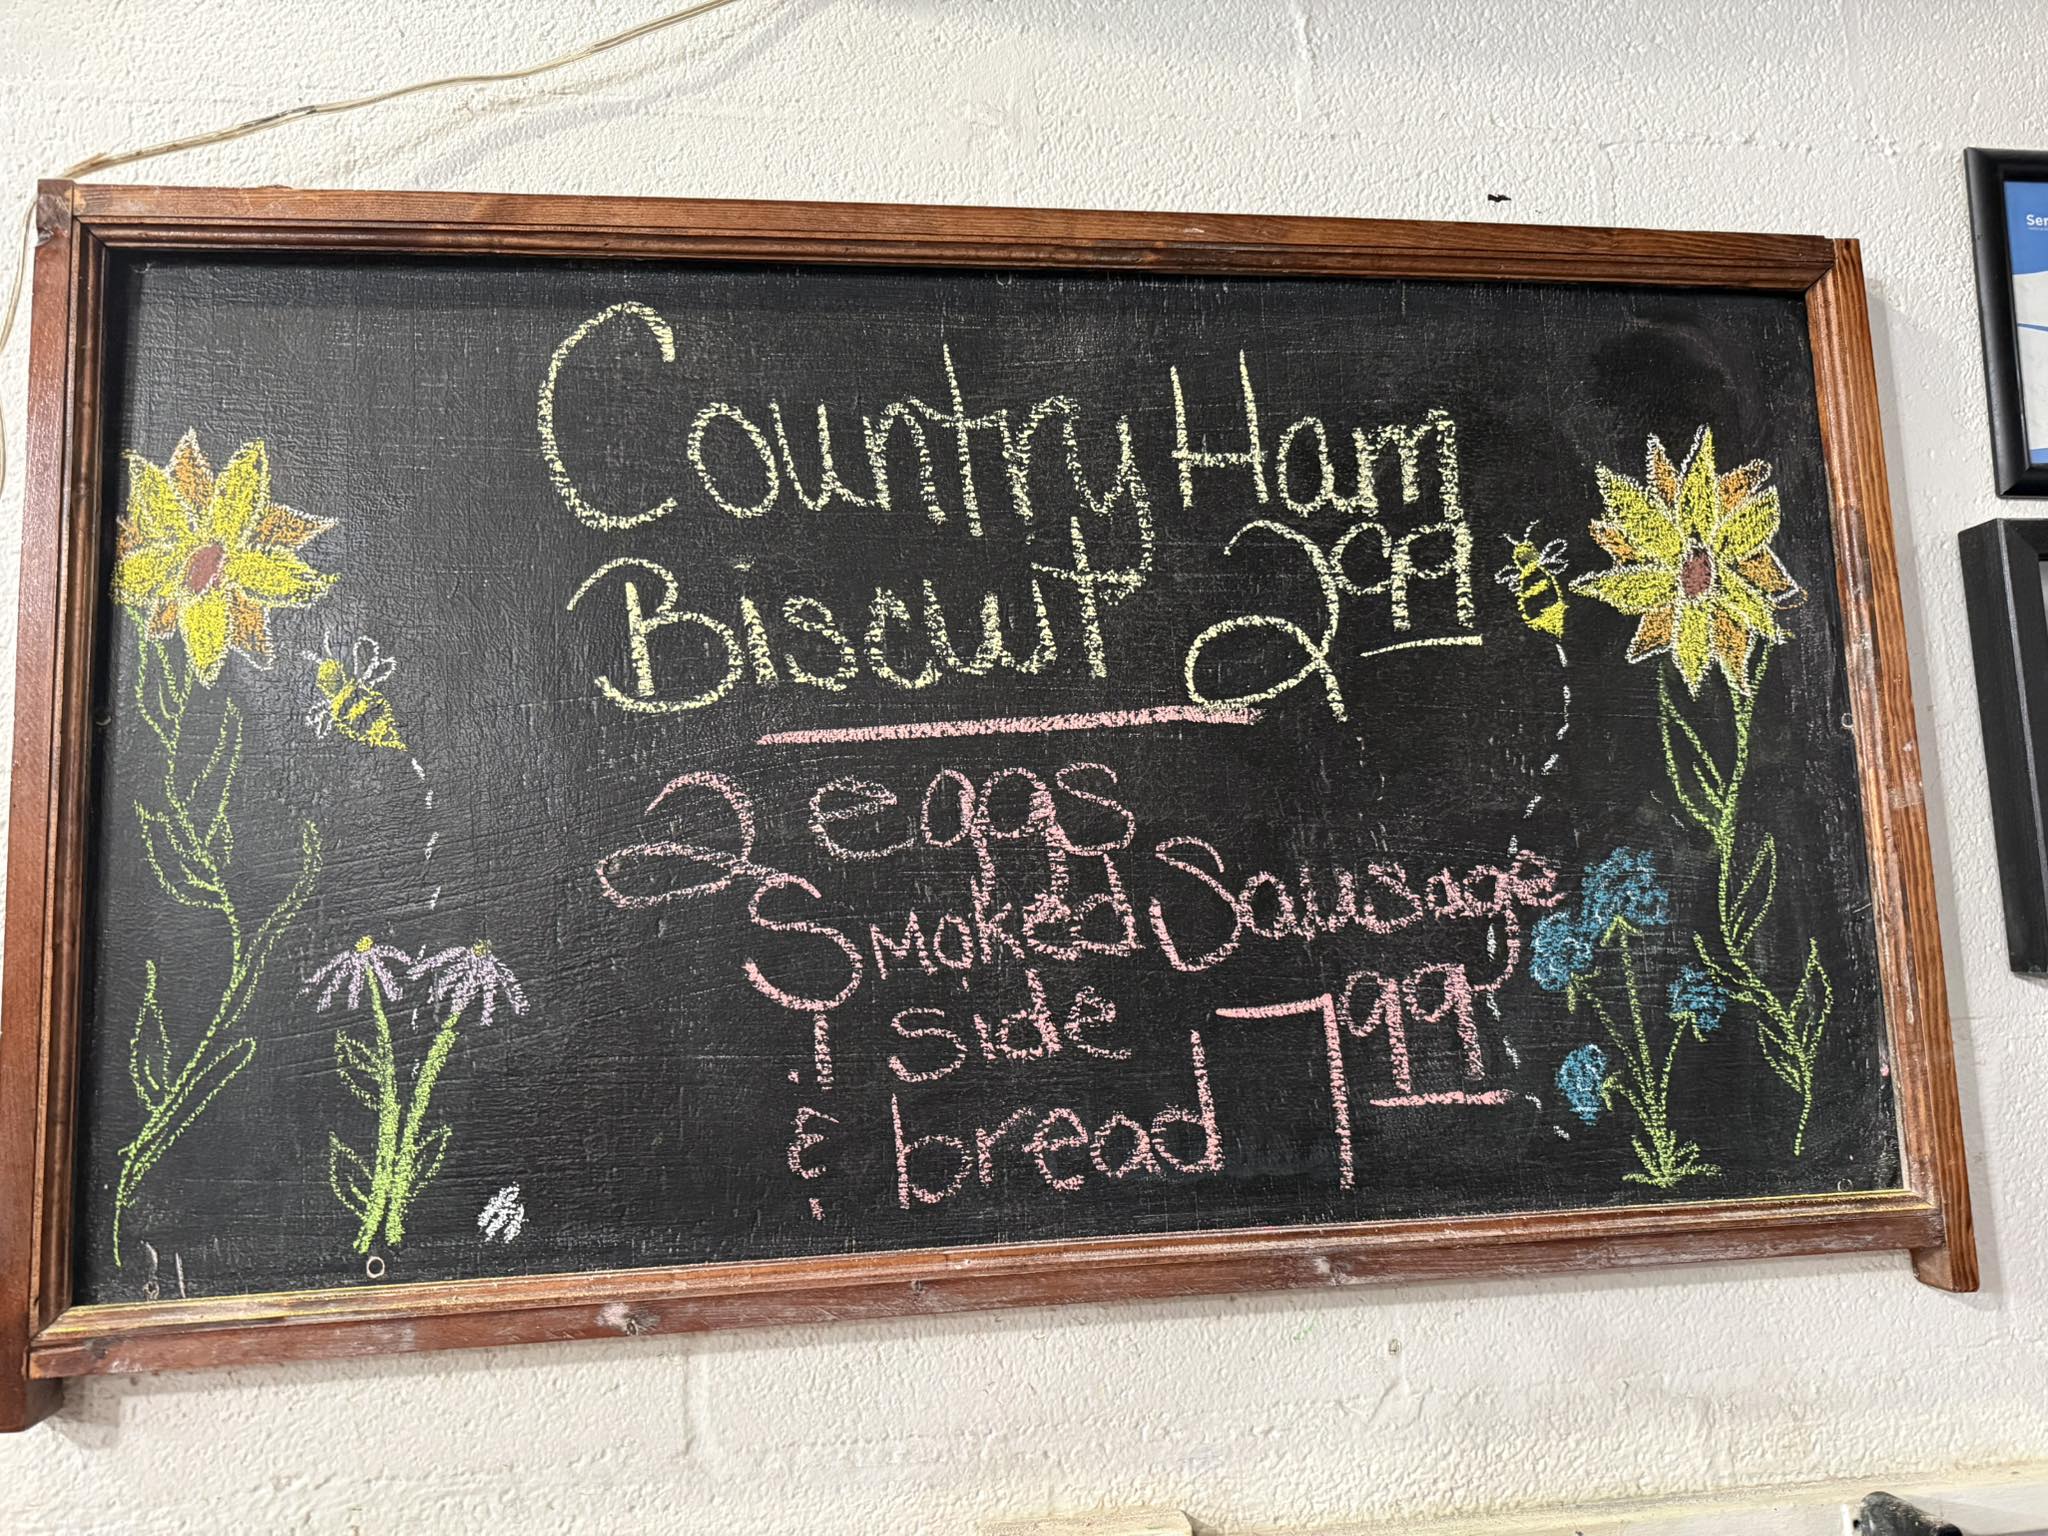 Country Ham
Biscuit 2.99
2 eggs
Smoked Sausage
1 side
& bread 7.99
Ser